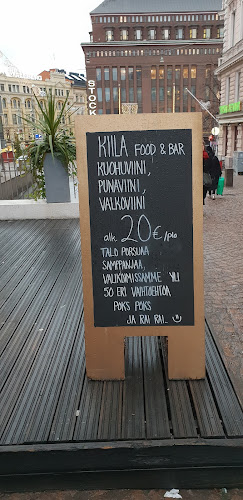 KIILA FOOD & BAR
KUOHUVIINI,
PUNAVIINI,
VALKOVIINI
alk. 20€/plo
TALO PORSUAA
SAMPPANJAA,
VALIKOIMISSAMME YLI
50 ERI VAIHTOEHTOA
POKS POKS
JA RAI RAI..
STOCK